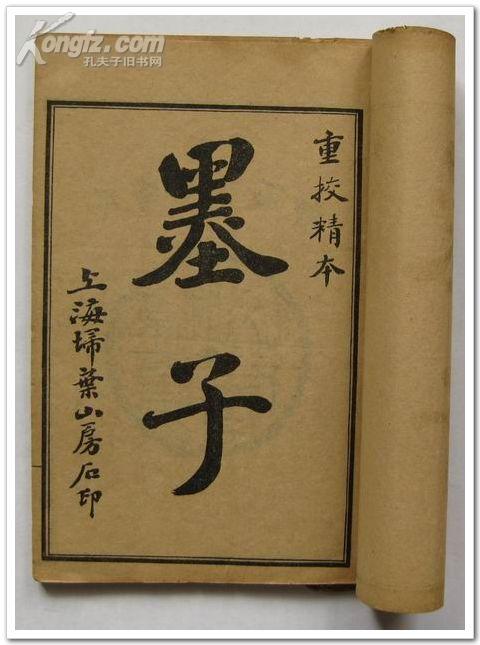 Kongfz.com
孔夫子旧书网
重挍精本
墨子
上海埽葉山房石印